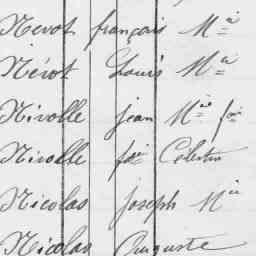 Nevot françois Mie
Névot Louis Mie
Nivolle jean Mie foi
Nivolle foi Celestin
Nicolas Joseph Mie
Nicolas Auguste